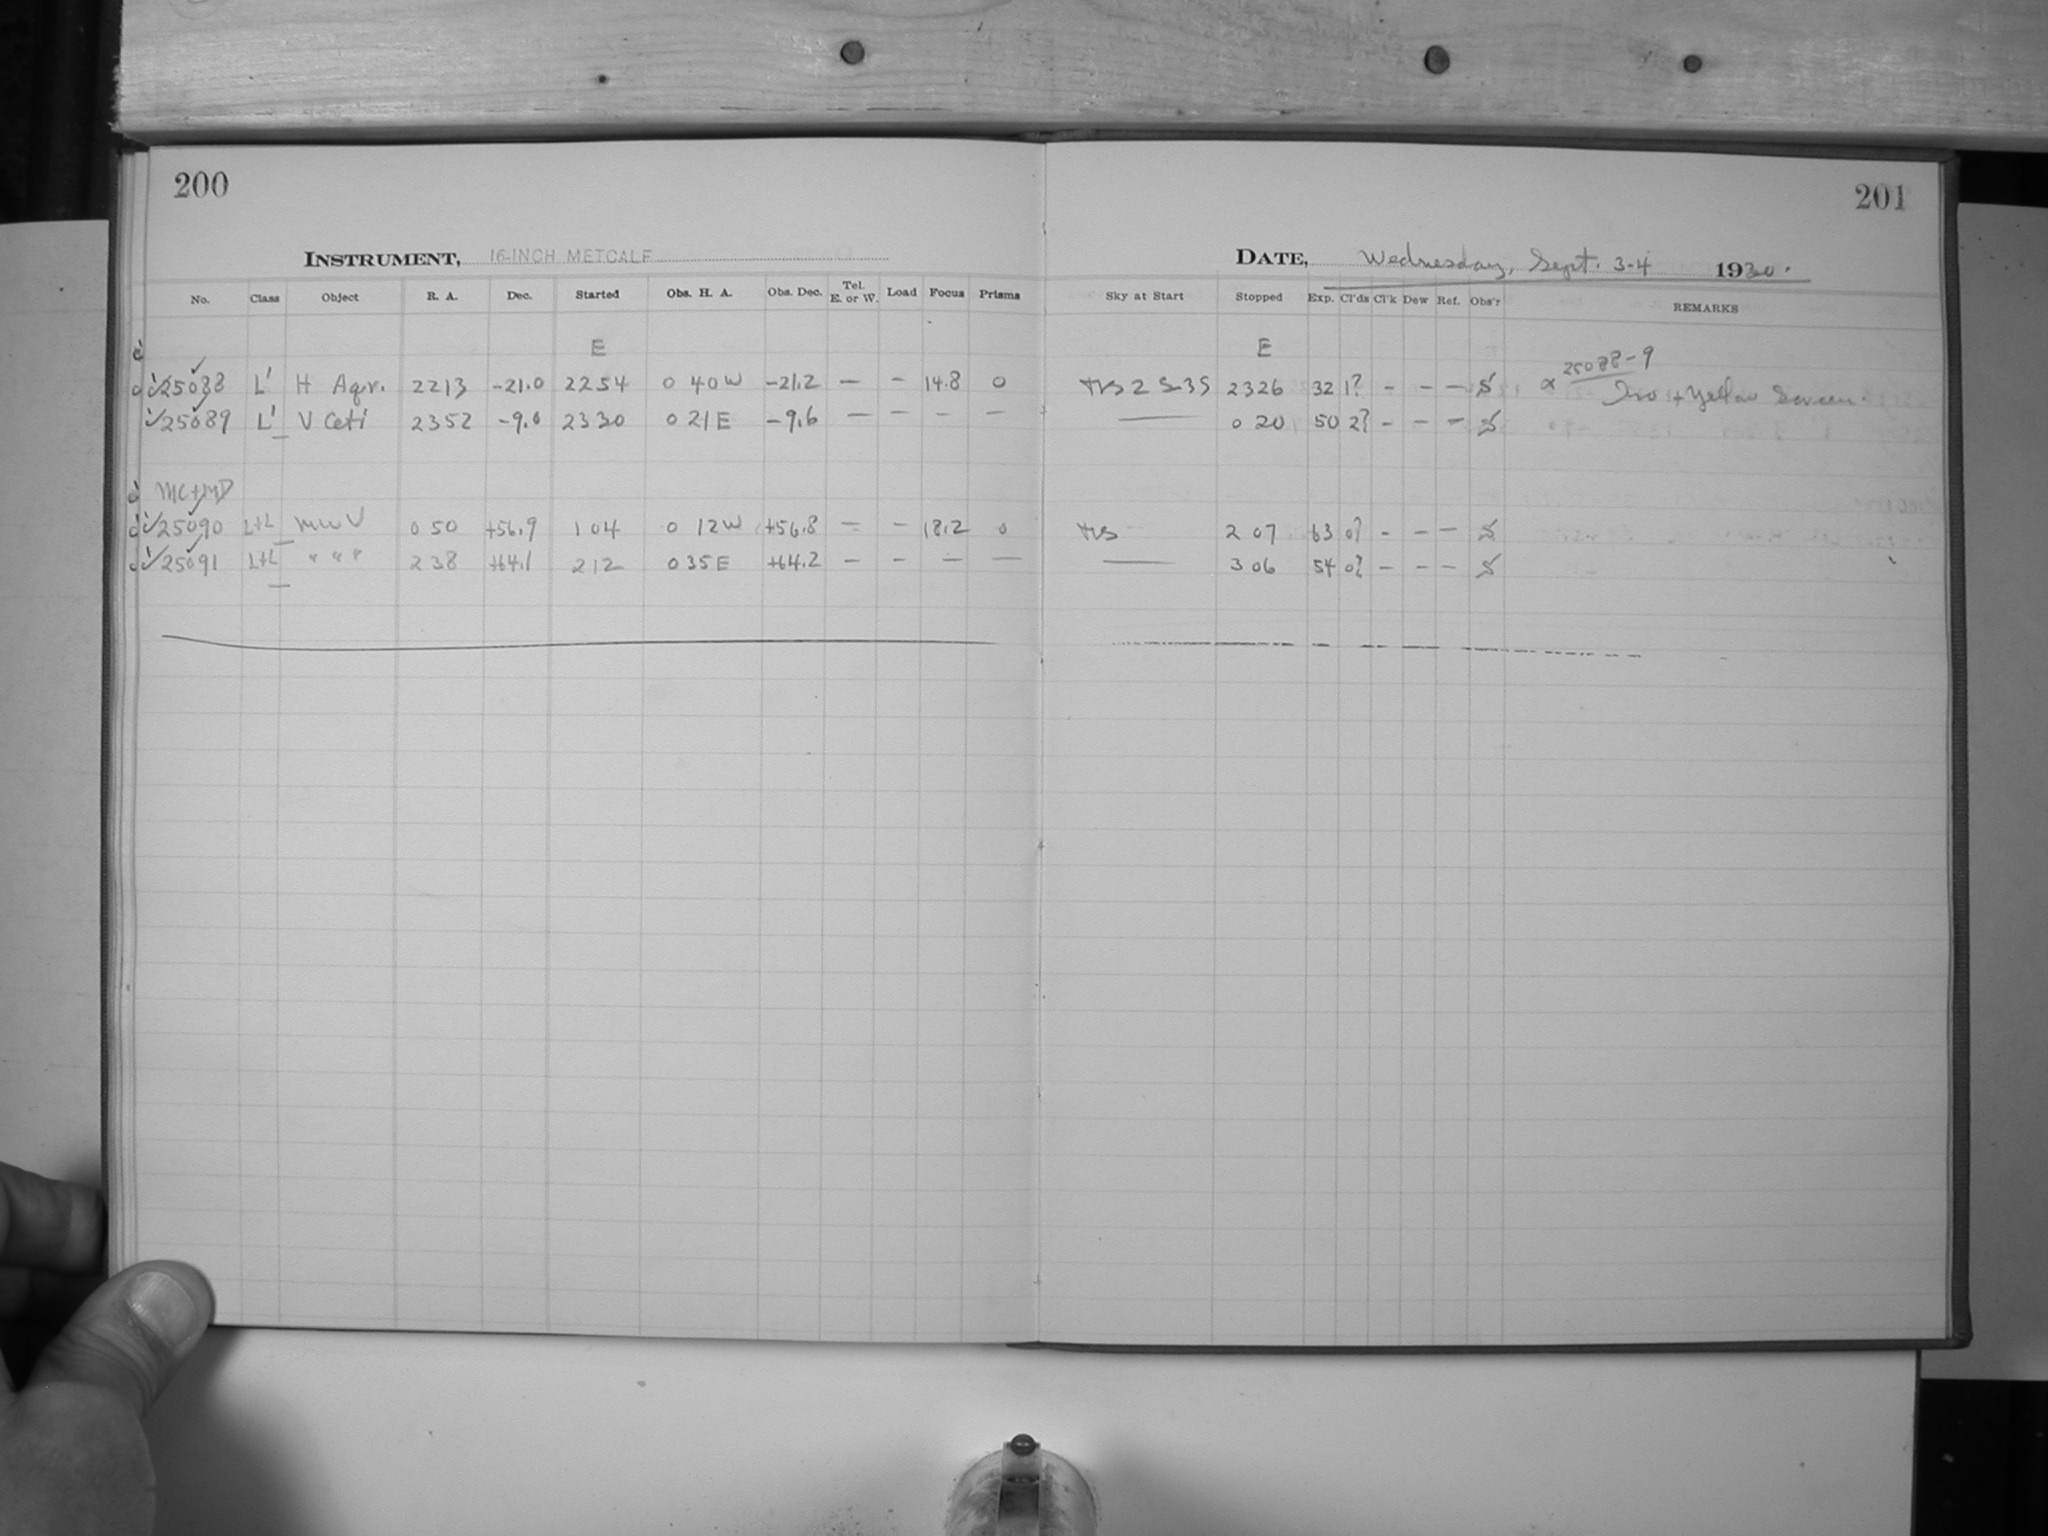 200
INSTRUMENT, 16-INCH METCALF
No. Class Object R. A. Dec. Started Obs. H. A. Obs. Dec. Tel. E. or W. Load Focus Prisms
E
25088 L' H Aqr. 2213 -21.0 2254 0 40 W -21.2 — - 14.8 0
25089 L' V Ceti 2352 -9.0 2330 0 21 E -9.6 — - — —
MC+MD
25090 L+L MWV 0 50 +56.9 1 04 0 12 W +56.8 — - 18.2 0
25091 L+L " " " 2 38 +64.1 2 12 0 35 E +64.2 — - — —
201
DATE, Wednesday, Sept. 3-4 1930.
Sky at Start Stopped Exp. Cl'ds Cl'k Dew Ref. Obs'r REMARKS
E
25088-9
2326 32 1? - - - Iso + Yellow Screen.
— 0 20 50 2? - - -
2 07 63 0? - - -
— 3 06 54 0? - - -